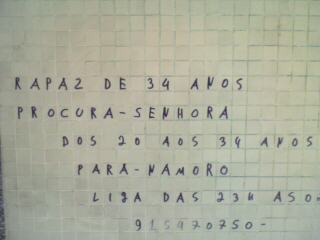 RAPAZ DE 34 ANOS
PROCURA-SENHORA
DOS 20 AOS 34 ANOS
PARA-NAMORO
LIGA DAS 23H AS 02
915970750-